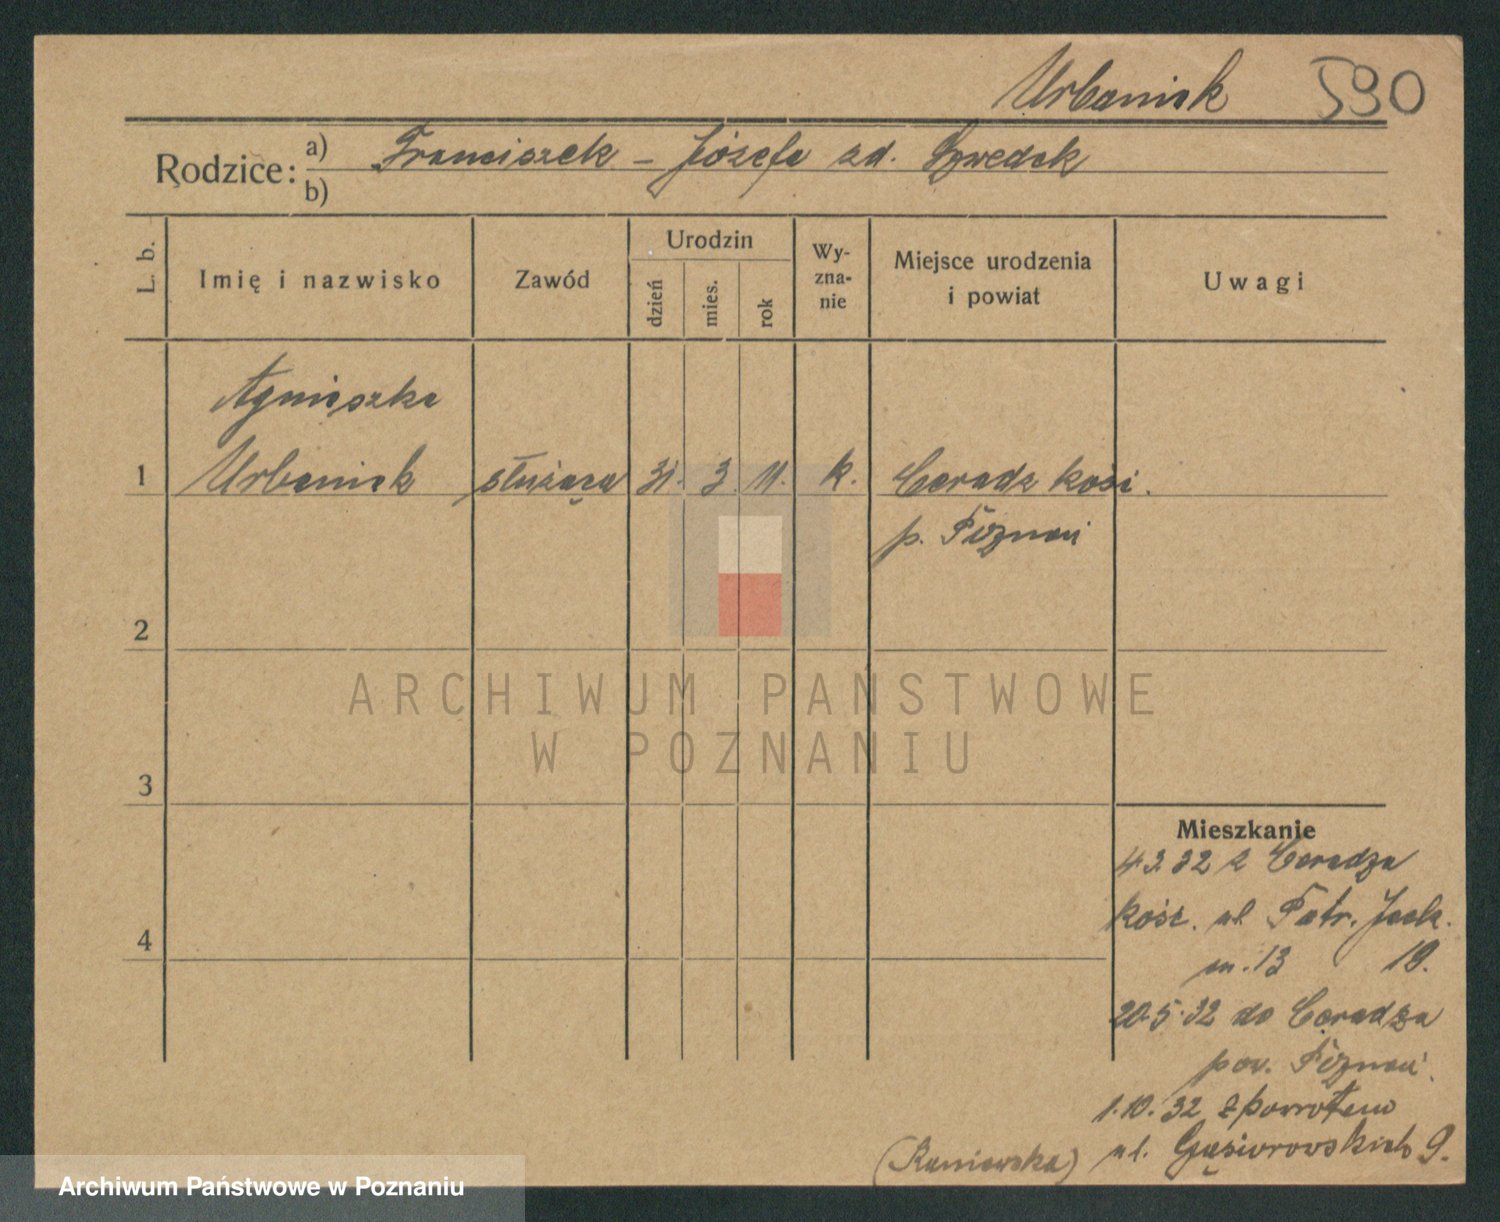 Urbaniak 590
Rodzice: a) Franciszek – Józefa zd. Szwedek
b)
L. b.
Imię i nazwisko
Zawód
Urodzin
dzień
mies.
rok
Wy-
zna-
nie
Miejsce urodzenia
i powiat
Uwagi
Agnieszka
1 Urbaniak służąca 31. 3. 11. k. Ceradz kośc.
p. Poznań
2
3
4
ARCHIWUM PAŃSTWOWE
W POZNANIU
Mieszkanie
4.3.32 z Ceradza
kośc. ul. Patr. Jack.
m. 13 19.
20.5.32 do Ceradza
pow. Poznań.
1.10.32 z powrotem
ul. Gąsiorowskich 9.
(Kaniewska)
Archiwum Państwowe w Poznaniu